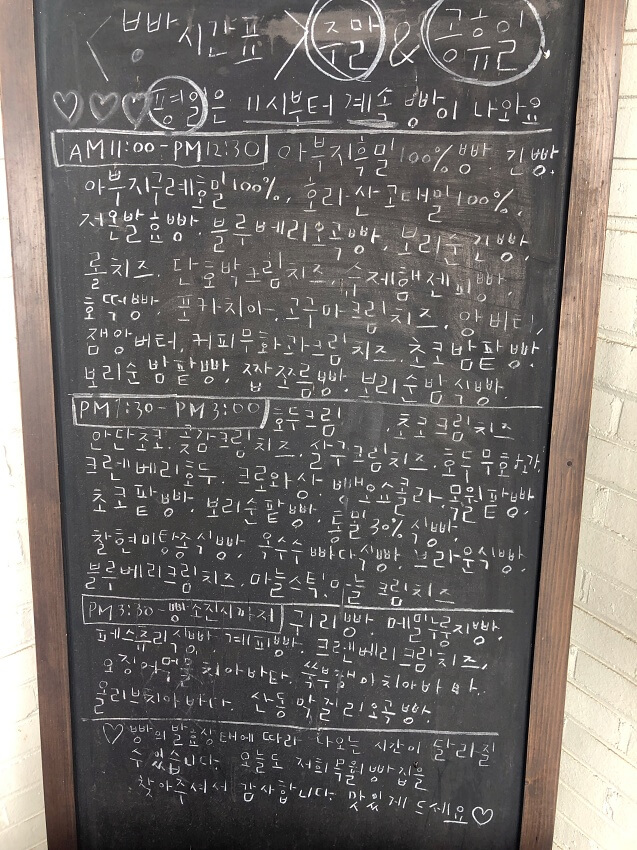 <빵 시간표> 주말 & 공휴일
평일은 11시부터 계속 빵이 나와요
AM 11:00 - PM 12:30 아부지흑밀100%빵. 긴빵.
아부지구례호밀100%, 호라산고대밀100%,
저온발효빵. 블루베리오곡빵, 보리순긴빵,
롤치즈. 단호박크림치즈. 수제햄젠피빵,
호떡빵, 포카치아, 고구마크림치즈, 앙버터,
잼앙버터, 커피무화과크림치즈. 초코밤팥빵
보리순밤팥빵, 짭쪼름빵, 보리순밤식빵.
PM 1:30 - PM 3:00 호두크림 , 초코크림치즈
안단초코. 곶감크림치즈, 살구크림치즈, 호두무화과,
크렌베리호두. 크로와상. 목월팥빵,
초코팥빵. 보리순팥빵. 통밀30%식빵.
찰현미탕종식빵, 옥수수빠다식빵, 브라운식빵,
블루베리크림치즈, 마늘스틱, 마늘크림치즈
PM 3:30 - 빵소진시까지 구리빵. 메밀누룽지빵,
페스츄리식빵. 계피빵. 크렌베리크림치즈,
오징어먹물치아바타. 쑥부쟁이치아바타.
올리브치아바타. 산동막걸리오곡빵.
빵의 발효상태에 따라 나오는 시간이 달라질
수 있습니다. 오늘도 저희 목월빵집을
찾아주셔서 감사합니다. 맛있게 드세요